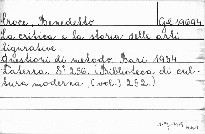 Croce, Benedetto Gd 19694
La critica e la storia delle arti
figurative
Questioni di metodo Bari 1934
Laterza 8° 236. (Biblioteca di cul-
tura moderna (vol.) 252.)